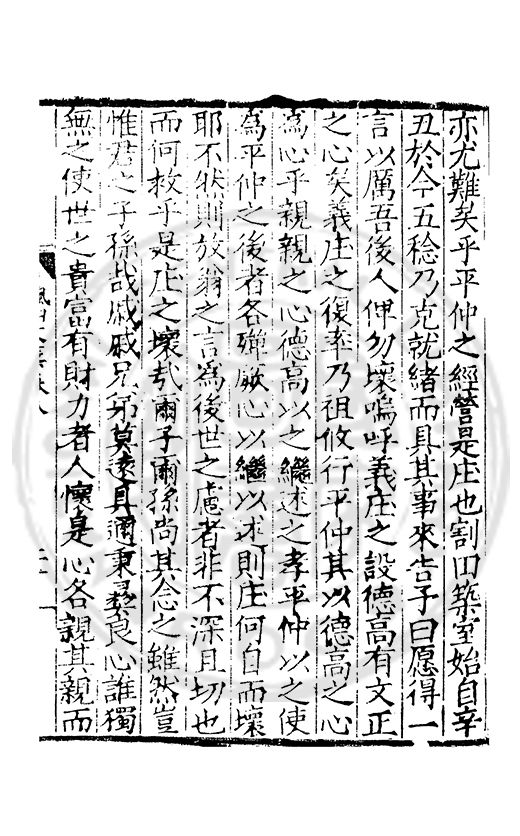 亦尤難矣乎平仲之經營是庄也割田築室始自辛
丑於今五稔乃克就緒而具其事來告予曰愿得一
言以厲吾後人俾勿壞嗚呼義庄之設德高有文正
之心矣義庄之復率乃祖攸行平仲其以德高之心
爲心乎親親之心德高以之繼述之孝平仲以之使
爲平仲之後者各殫厥心以繼以述則庄何自而壞
耶不然則放翁之言為後世之慮者非不深且切也
而何救乎是庄之壞㢤爾子爾孫尚其念之雖然豈
惟君之子孫哉戚戚兄弟莫遠具邇秉彝良心誰獨
無之使世之貴富有財力者人懷是心各親其親而